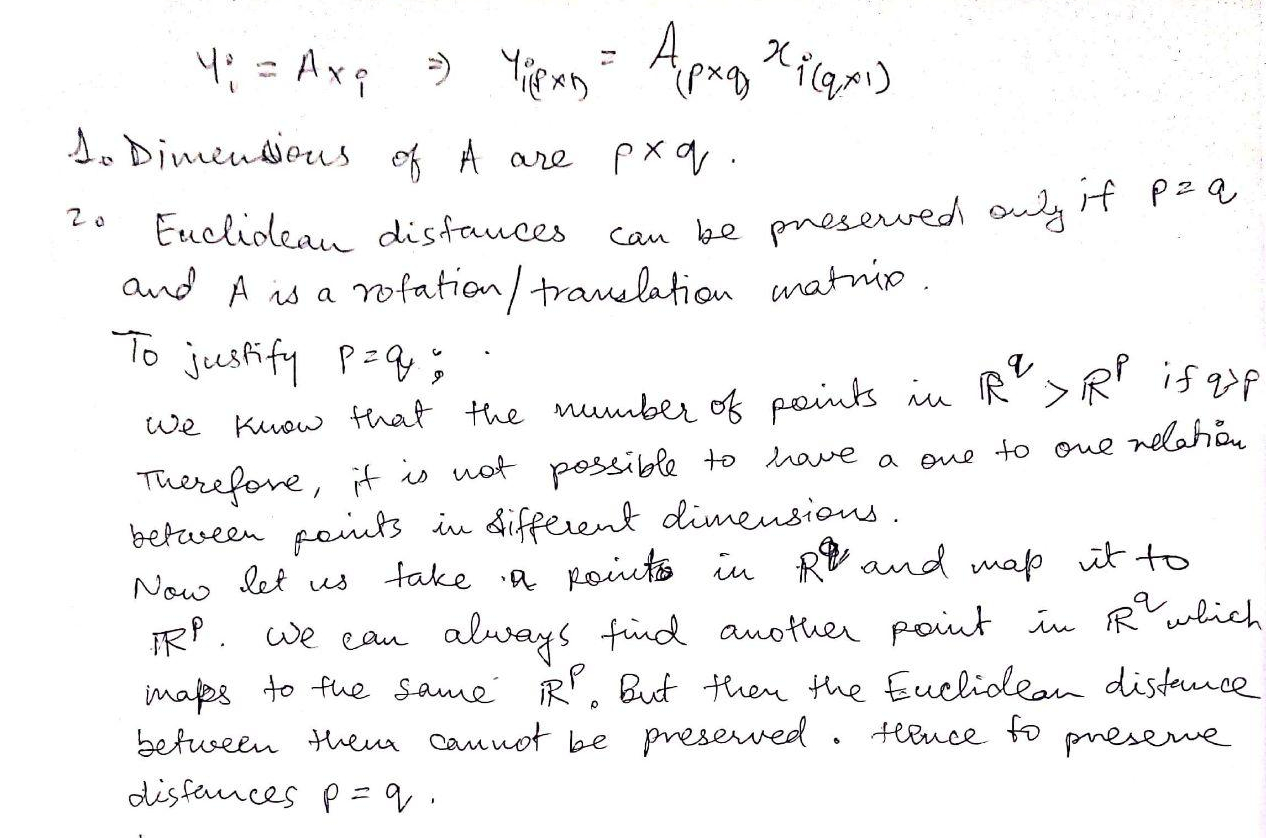 Yi = Axi ⇒ Yi(p×1) = A(p×q) xi(q×1)
1. Dimensions of A are p×q.
2. Euclidean distances can be preserved only if p=q
and A is a rotation/translation matrix.
To justify p=q;
We know that the number of points in ℝ^q > ℝ^p if q>p
Therefore, it is not possible to have a one to one relation
between points in different dimensions.
Now let us take a points in ℝ^q and map it to
ℝ^p. We can always find another point in ℝ^q which
maps to the same ℝ^p. But then the Euclidean distance
between them cannot be preserved. Hence to preserve
distances p=q.